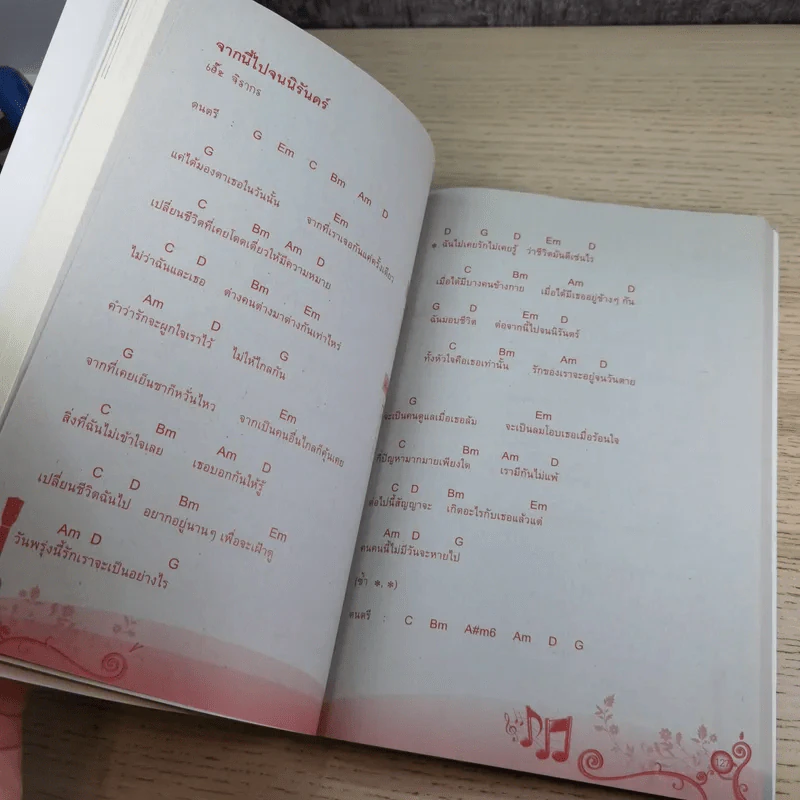 จากนี้ไปจนนิรันดร์
เอ๊ะ จิรากร
ดนตรี : G Em C Bm Am D
G Em
แค่ได้มองตาเธอในวันนั้น จากที่เราเจอกันแค่ครั้งเดียว
C Bm Am D
เปลี่ยนชีวิตที่เคยโดดเดี่ยวให้มีความหมาย
C D Bm Em
ไม่ว่าฉันและเธอ ต่างคนต่างมาต่างกันเท่าไหร่
Am D G
คำว่ารักจะผูกใจเราไว้ ไม่ให้ไกลกัน
G Em
จากที่เคยเย็นชาก็หวั่นไหว จากเป็นคนอื่นไกลก็คุ้นเคย
C Bm Am D
สิ่งที่ฉันไม่เข้าใจเลย เธอบอกกันให้รู้
C D Bm Em
เปลี่ยนชีวิตฉันไป อยากอยู่นานๆ เพื่อจะเฝ้าดู
Am D G
วันพรุ่งนี้รักเราจะเป็นอย่างไร
D G D Em D
* ฉันไม่เคยรักไม่เคยรู้ ว่าชีวิตมันดีเช่นไร
C Bm Am D
เมื่อได้มีบางคนข้างกาย เมื่อได้มีเธออยู่ข้างๆ กัน
G D Em D
ฉันมอบชีวิต ต่อจากนี้ไปจนนิรันดร์
C Bm Am D
ทั้งหัวใจคือเธอเท่านั้น รักของเราจะอยู่จนวันตาย
G Em
จะเป็นคนดูแลเมื่อเธอล้ม จะเป็นลมโอบเธอเมื่อร้อนใจ
C Bm Am D
ปัญหามากมายเพียงใด เรามีกันไม่แพ้
C D Bm Em
ต่อไปนี้สัญญาจะ เกิดอะไรกับเธอแล้วแต่
Am D G
คนคนนี้ไม่มีวันจะหายไป
(ซ้ำ *, *)
ดนตรี : C Bm A#m6 Am D G